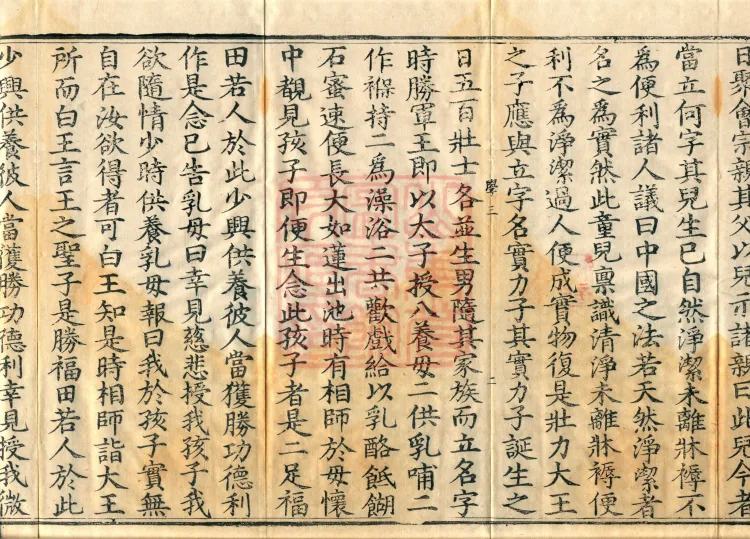 日聚會宗親其父以兒示諸親曰此兒今者
當立何字其兒生已自然淨潔未離牀褥不
為便利諸人議曰中國之法若天然淨潔者
名之為實然此童兒稟識清淨未離牀褥便
利不為淨潔過人便成實物復是壯力大王
之子應與立字名實力子其實力子誕生之
學 三
二
日五百壯士各並生男隨其家族而立名字
時勝軍王即以太子授八養母二供乳哺二
作褓持二為澡浴二共歡戲給以乳酪餁餬
石蜜速便長大如蓮出池時有相師於母懷
中覩見孩子即便生念此孩子者是二足福
田若人於此少興供養彼人當獲勝功德利
作是念已告乳母曰幸見慈悲授我孩子我
欲隨情少時供養乳母報曰我於孩子實無
自在汝欲得者可白王知是時相師詣大王
所而白王言王之聖子是勝福田若人於此
少興供養彼人當獲勝功德利幸見授我微